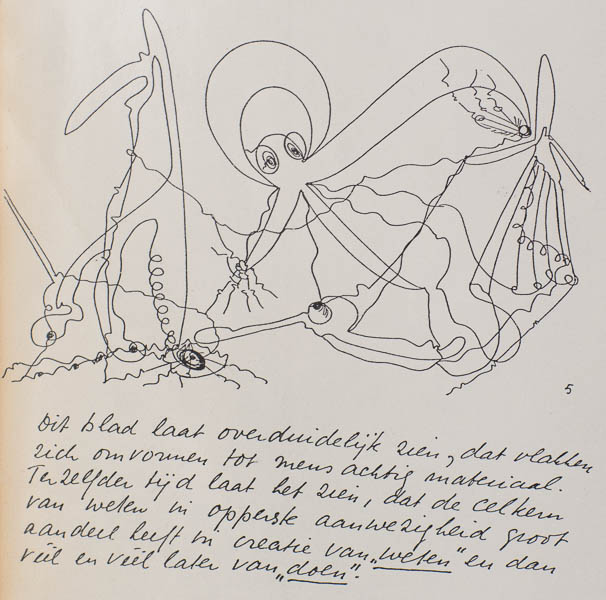 5
Dit blad laat overduidelijk zien, dat vlakken
zich omvormen tot mens achtig materiaal.
Terzelfder tijd laat het zien, dat de celkern
van weten in opperste aanwezigheid groot
aandeel heeft in creatie van „weten” en dan
véél en véél later van „doen”.